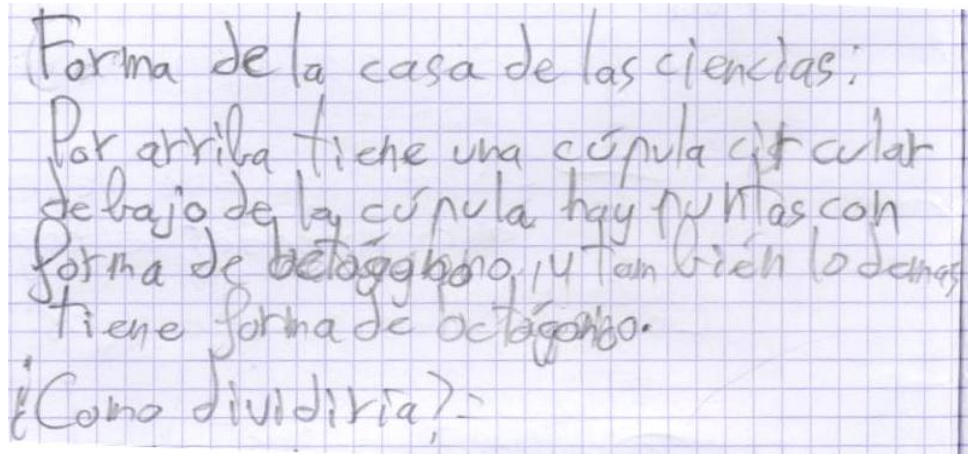 Forma de la casa de las ciencias:
Por arriba tiene una cúpula circular
debajo de la cúpula hay puntas con
forma de octógono, y también lo demas
tiene forma de octógono.
¿Como dividiría?-